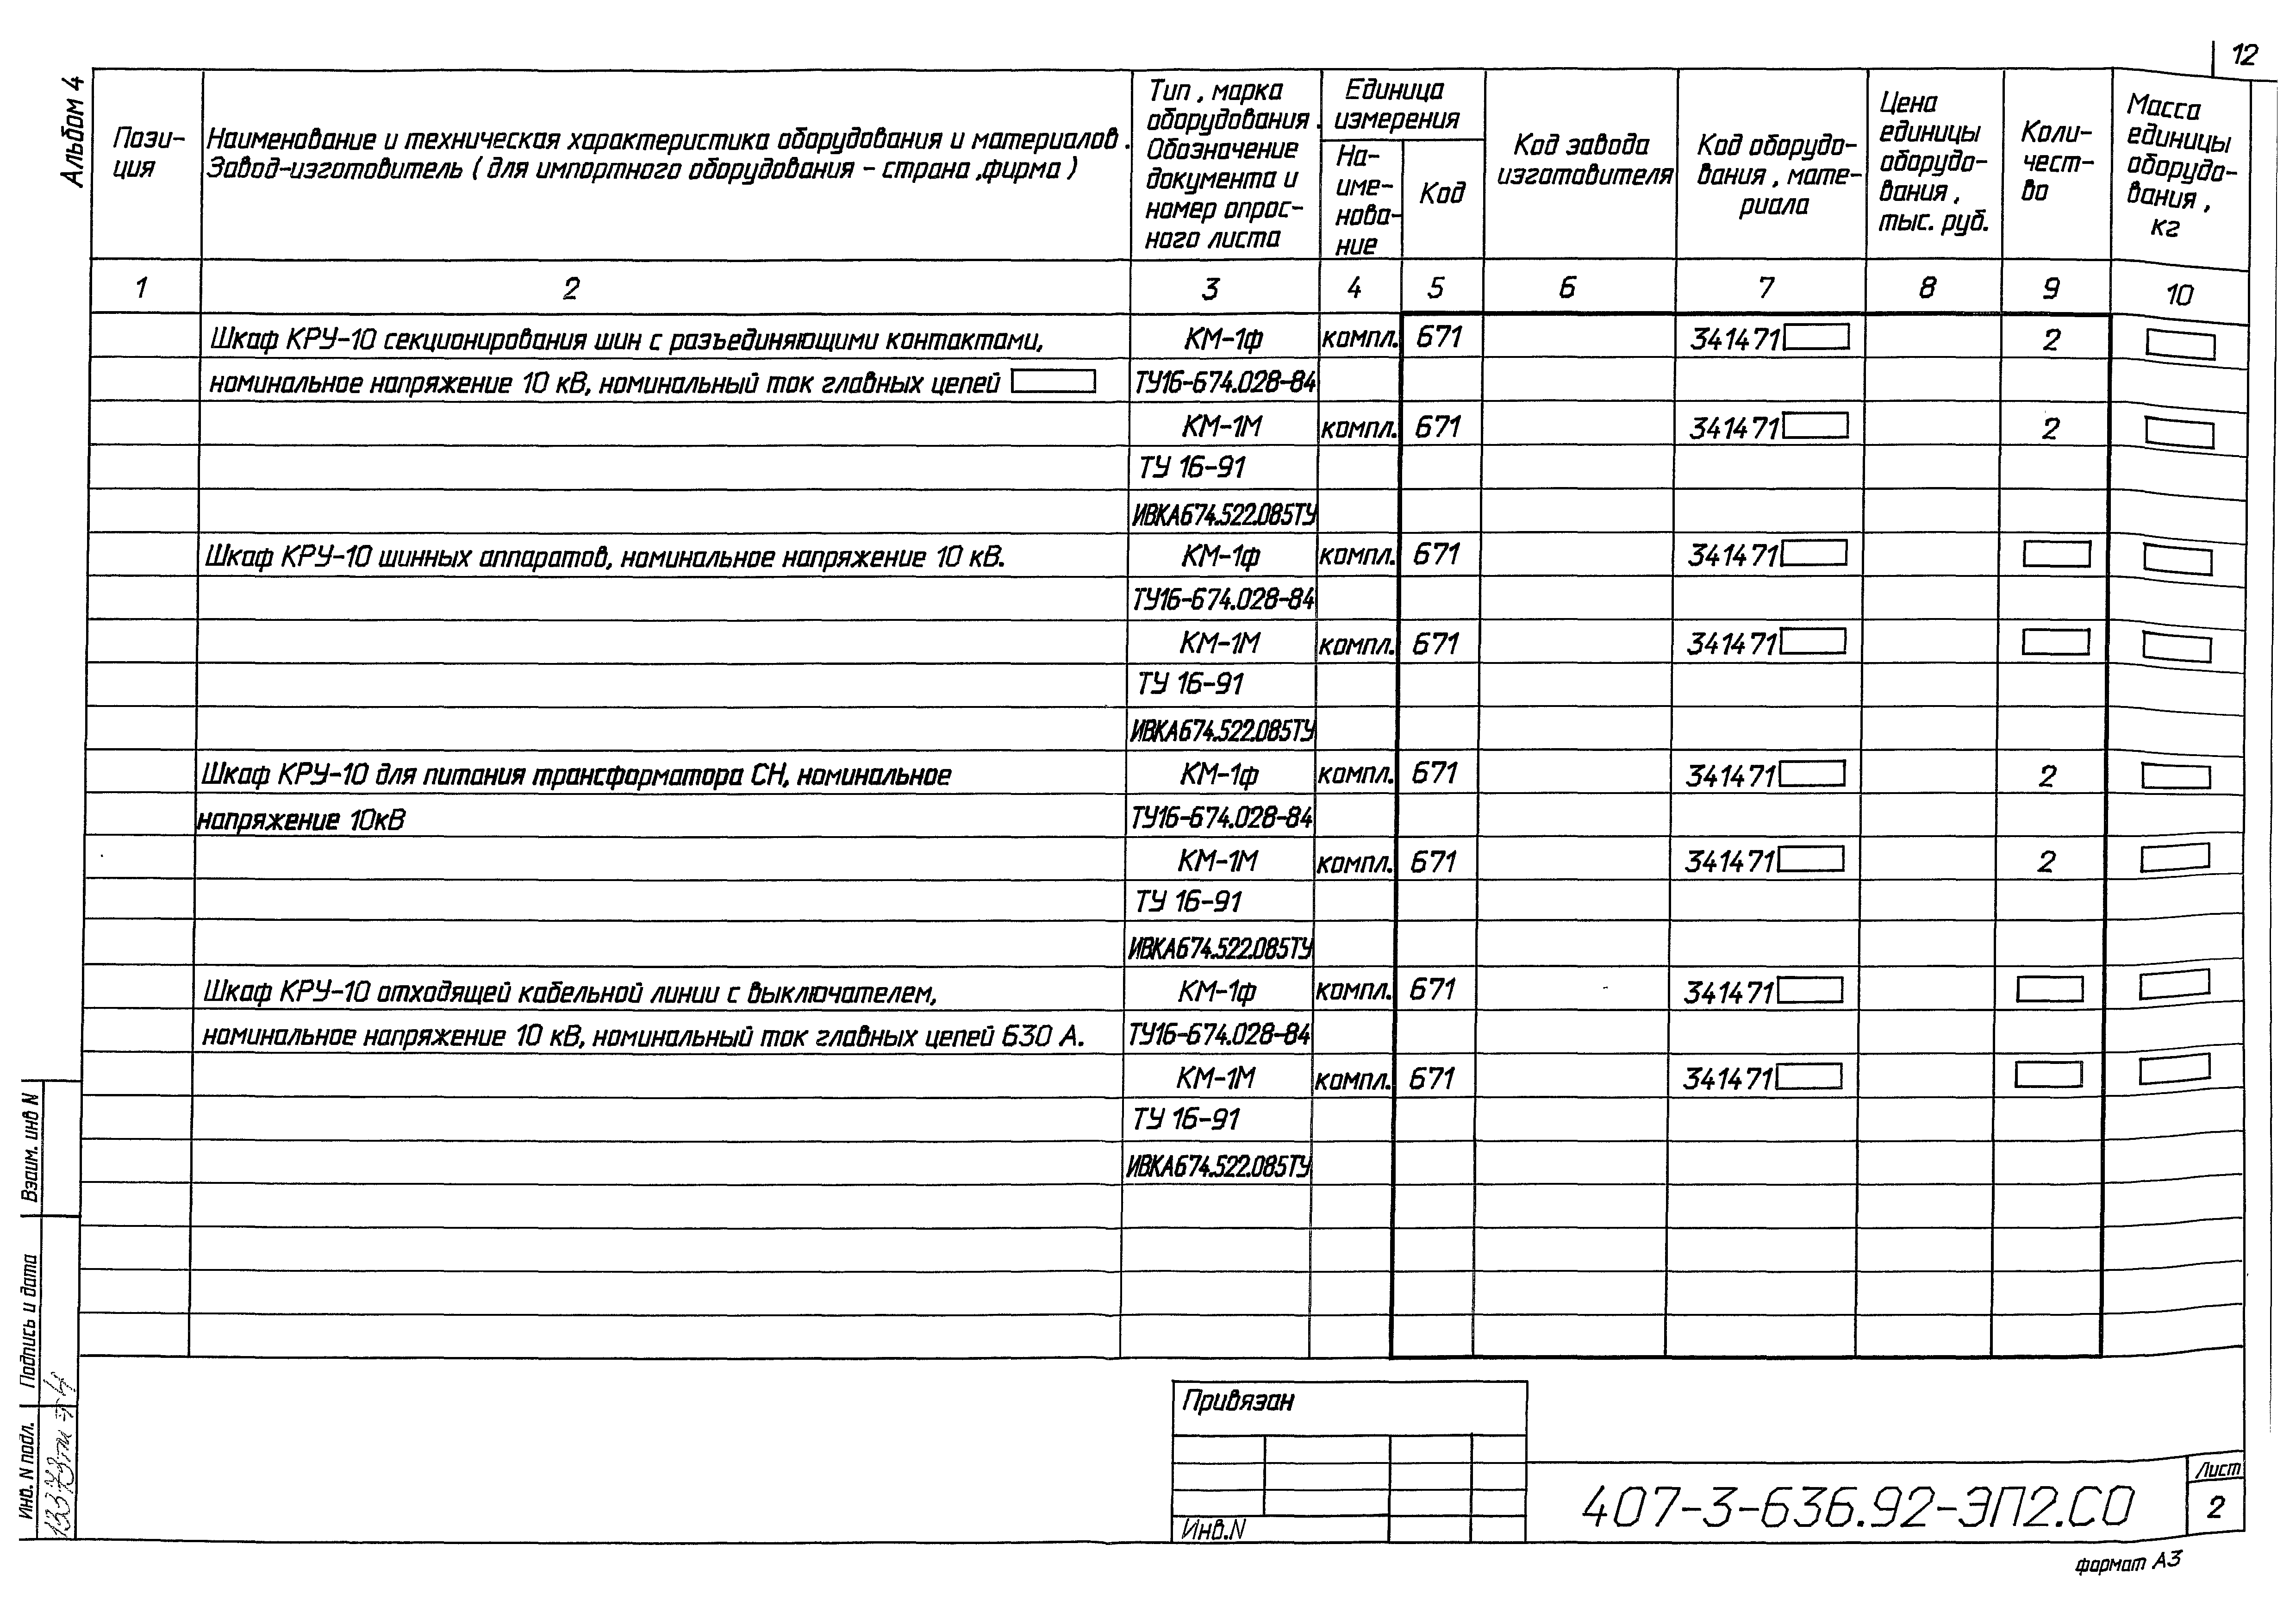 12
Альбом 4
Пози-
ция
Наименование и техническая характеристика оборудования и материалов.
Завод-изготовитель ( для импортного оборудования - страна, фирма )
Тип, марка
оборудования.
Обозначение
документа и
номер опрос-
ного листа
Единица
измерения
На-
име-
нова-
ние
Код
Код завода
изготовителя
Код оборудо-
вания, мате-
риала
Цена
единицы
оборудо-
вания,
тыс. руб.
Коли-
чест-
во
Масса
единицы
оборудо-
вания,
кг
1 2 3 4 5 6 7 8 9 10
Шкаф КРУ-10 секционирования шин с разъединяющими контактами, КМ-1ф компл. 671 341471 2
номинальное напряжение 10 кВ, номинальный ток главных цепей ТУ16-674.028-84
КМ-1М компл. 671 341471 2
ТУ 16-91
ИВКА674.522.085ТУ
Шкаф КРУ-10 шинных аппаратов, номинальное напряжение 10 кВ. КМ-1ф компл. 671 341471
ТУ16-674.028-84
КМ-1М компл. 671 341471
ТУ 16-91
ИВКА674.522.085ТУ
Шкаф КРУ-10 для питания трансформатора СН, номинальное КМ-1ф компл. 671 341471 2
напряжение 10кВ ТУ16-674.028-84
КМ-1М компл. 671 341471 2
ТУ 16-91
ИВКА674.522.085ТУ
Шкаф КРУ-10 отходящей кабельной линии с выключателем, КМ-1ф компл. 671 341471
номинальное напряжение 10 кВ, номинальный ток главных цепей 630 А. ТУ16-674.028-84
КМ-1М компл. 671 341471
ТУ 16-91
ИВКА674.522.085ТУ
Взаим. инв N
Подпись и дата
Инв. N подл.
Привязан
Инв.N
407-3-636.92-ЭП2.СО
Лист
2
формат А3